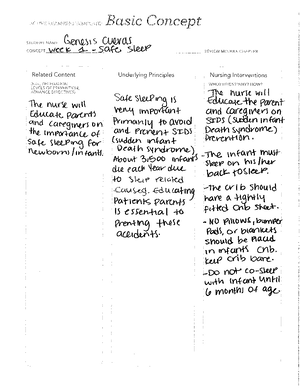 ACTIVE LEARNING TEMPLATE: Basic Concept
STUDENT NAME Genesis Cuevas
CONCEPT week 2 - Safe Sleep
REVIEW MODULE CHAPTER
Related Content
Underlying Principles
Nursing Interventions
The nurse will
Educate Parents
and caregivers on
the importance of
safe sleeping for
newborns/infants.
Safe Sleeping is
very important
Primarily to Avoid
and Prevent SIDS
(sudden infant
Death syndrome)
About 3,500 infants
die each year due
to sleep related
Causes. Educating
Patients Parents
is essential to
Preventing those
accidents.
The nurse will
Educate the Parent
and caregivers on
SIDS (Sudden infant
Death syndrome)
Prevention.
- The infant must
sleep on his/her
back to sleep.
- The crib should
have a tightly
fitted crib sheet.
- NO Pillows, bumper
Pads, or blankets
should be Placed
in infants crib.
Keep crib bare.
- Do not co-sleep
with infant until
6 months of age.